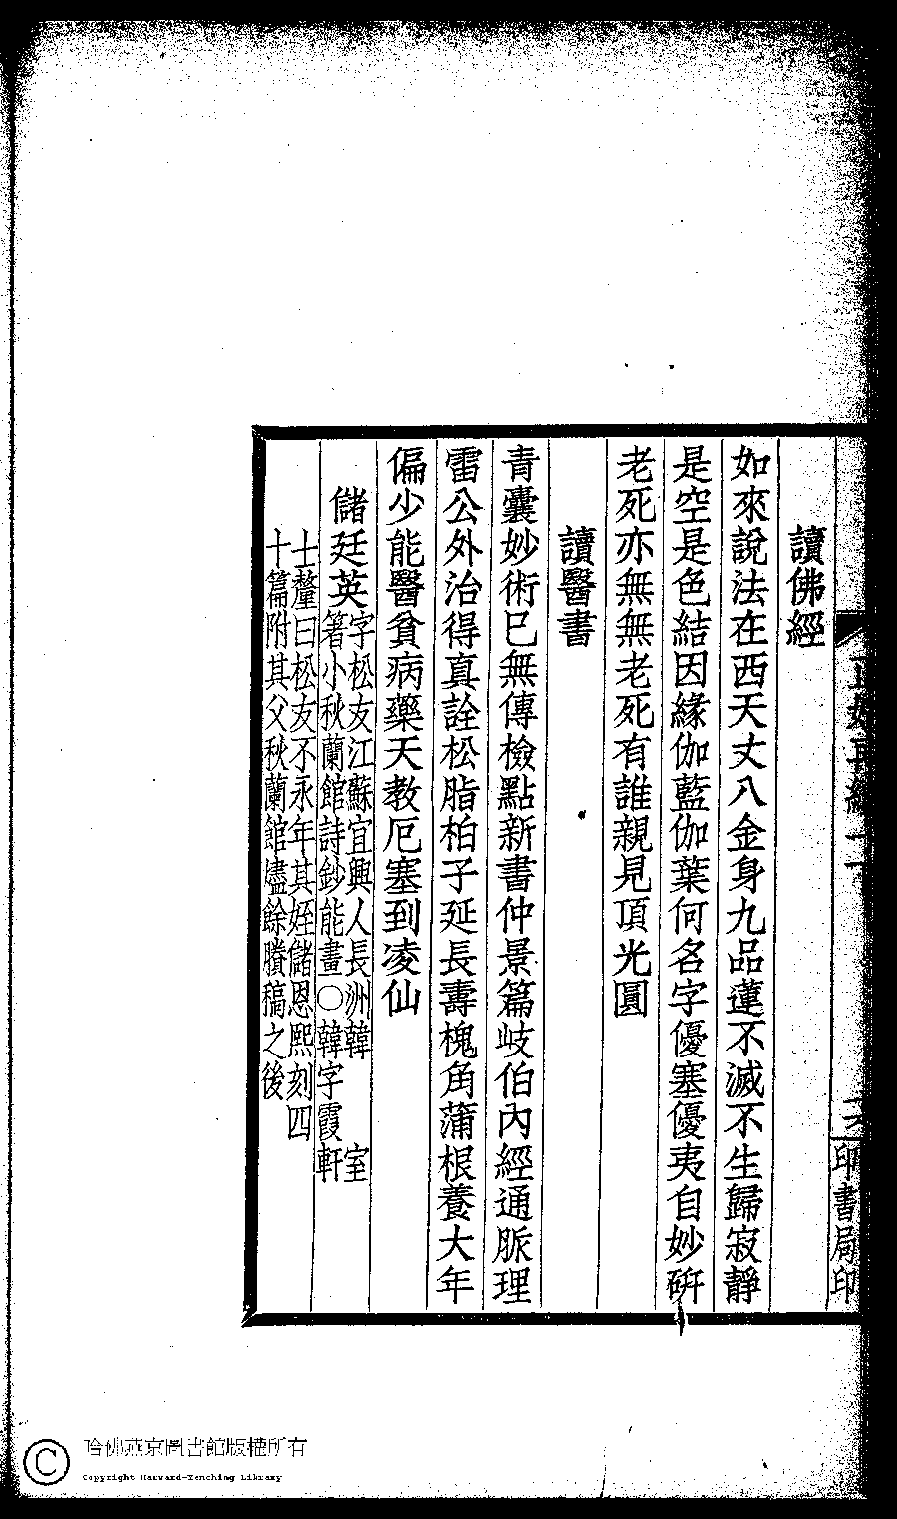 讀佛經
如來說法在西天丈八金身九品蓮不滅不生歸寂靜
是空是色結因緣伽藍伽葉何名字優塞優夷自妙硏
老死亦無無老死有誰親見頂光圓
讀醫書
青囊妙術已無傳檢點新書仲景篇岐伯內經通脈理
雷公外治得真詮松脂柏子延長壽槐角蒲根養大年
偏少能醫貧病藥天教厄塞到凌仙
儲廷英
字松友江蘇宜興人長洲韓 室
箸小秋蘭館詩鈔能畫○韓字霞軒
士釐曰松友不永年其姪儲恩熙刻四
十篇附其父秋蘭館燼餘賸稿之後
印書局印
哈佛燕京圖書館版權所有
Copyright Harvard-Yenching Library